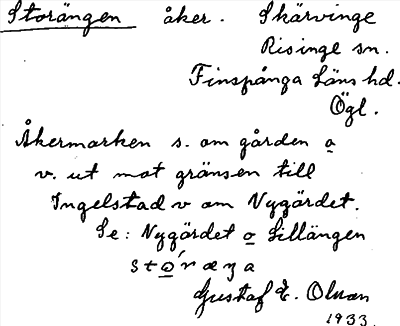 Storängen åker. Skärvinge
Risinge sn.
Finspånga Läns hd.
Ögl.
Åkermarken s. om gården o
v. ut mot gränsen till
Ingelstad v om Nygärdet.
Se: Nygärdet o Lillängen
Gustaf E. Olson
1933.